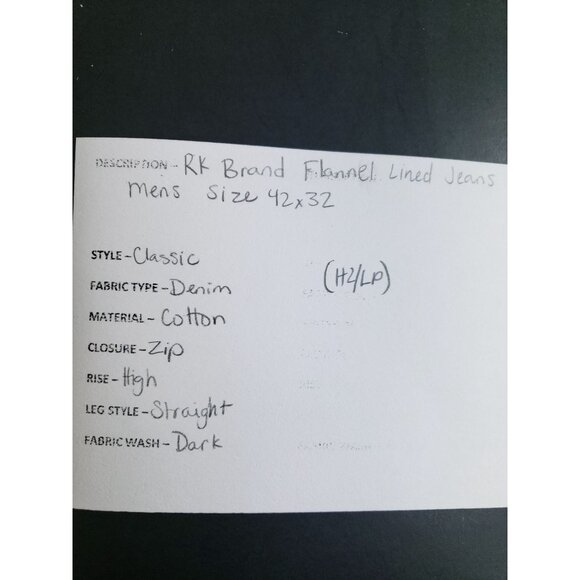 DESCRIPTION - RK Brand Flannel Lined Jeans
Mens Size 42x32
STYLE - Classic
FABRIC TYPE - Denim
(H2/LP)
MATERIAL - Cotton
CLOSURE - Zip
RISE - High
LEG STYLE - Straight
FABRIC WASH - Dark